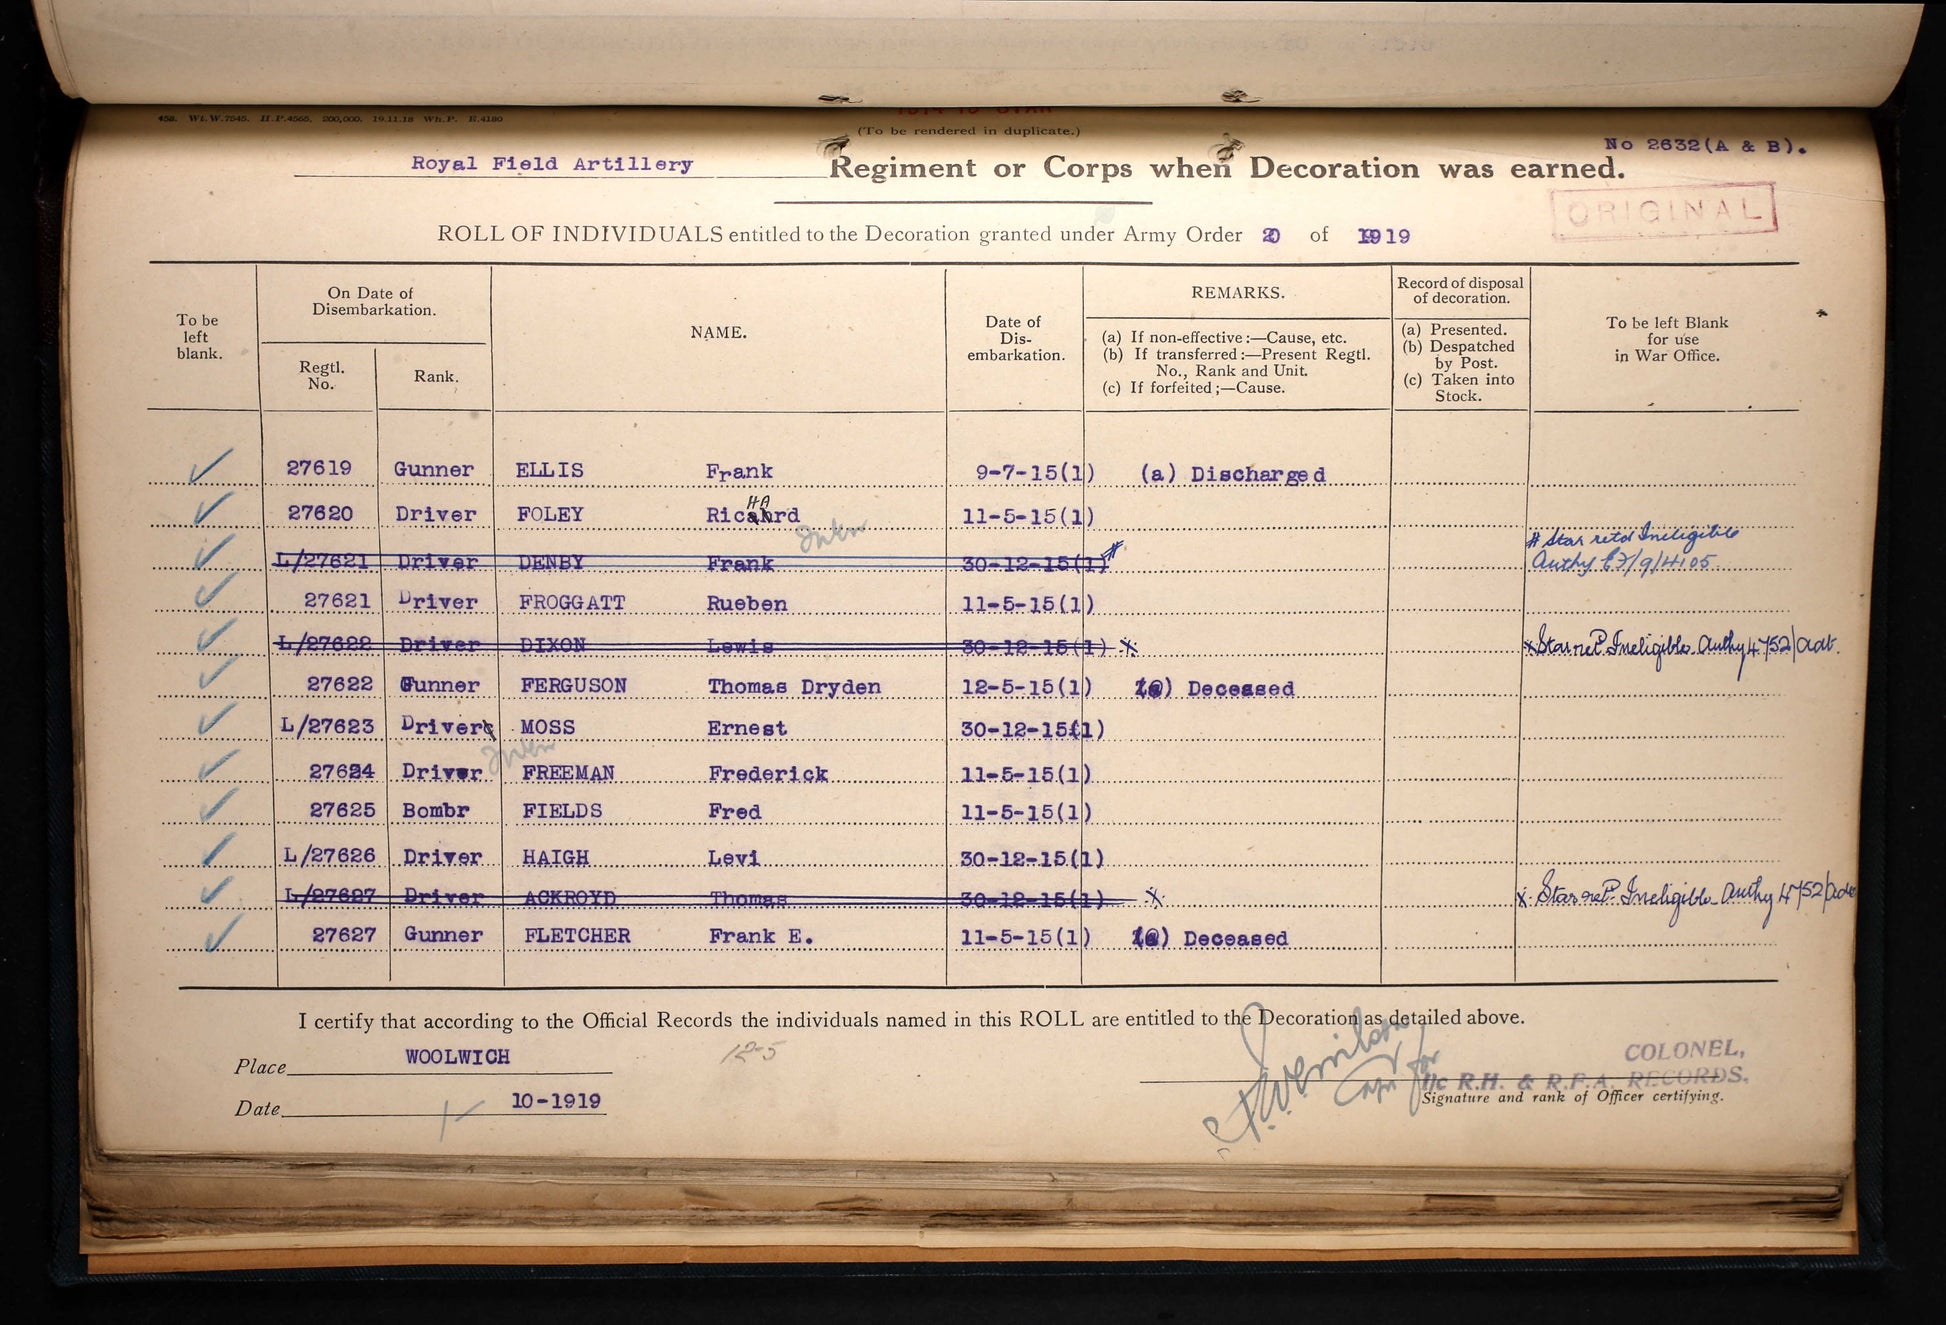 458. Wt.W.7545. H.P.4565. 200,000. 19.11.18 Wh.P. E.4180
(To be rendered in duplicate.)
No 2632(A & B).
Royal Field Artillery Regiment or Corps when Decoration was earned.
ORIGINAL
ROLL OF INDIVIDUALS entitled to the Decoration granted under Army Order 20 of 1919
To be left blank.
On Date of Disembarkation.
Regtl. No.
Rank.
NAME.
Date of Dis-embarkation.
REMARKS.
(a) If non-effective:—Cause, etc.
(b) If transferred:—Present Regtl. No., Rank and Unit.
(c) If forfeited;—Cause.
Record of disposal of decoration.
(a) Presented.
(b) Despatched by Post.
(c) Taken into Stock.
To be left Blank for use in War Office.
27619 Gunner ELLIS Frank 9-7-15(1) (a) Discharged
27620 Driver FOLEY Richard 11-5-15(1)
L/27621 Driver DENBY Frank 30-12-15(1) # # Star retd Ineligible
Authy
27621 Driver FROGGATT Rueben 11-5-15(1)
L/27622 Driver DIXON Lewis 30-12-15(1) x x Star retd Ineligible Authy 4752/
27622 Gunner FERGUSON Thomas Dryden 12-5-15(1) (a) Deceased
L/27623 Driver MOSS Ernest 30-12-15(1)
27624 Driver FREEMAN Frederick 11-5-15(1)
27625 Bombr FIELDS Fred 11-5-15(1)
L/27626 Driver HAIGH Levi 30-12-15(1)
L/27627 Driver ACKROYD Thomas 30-12-15(1) x x Star retd Ineligible Authy 4752/
27627 Gunner FLETCHER Frank E. 11-5-15(1) (a) Deceased
I certify that according to the Official Records the individuals named in this ROLL are entitled to the Decoration as detailed above.
Place WOOLWICH
12-5
Capt for
COLONEL,
I/c R.H. & R.F.A. RECORDS.
Signature and rank of Officer certifying.
Date 10-1919